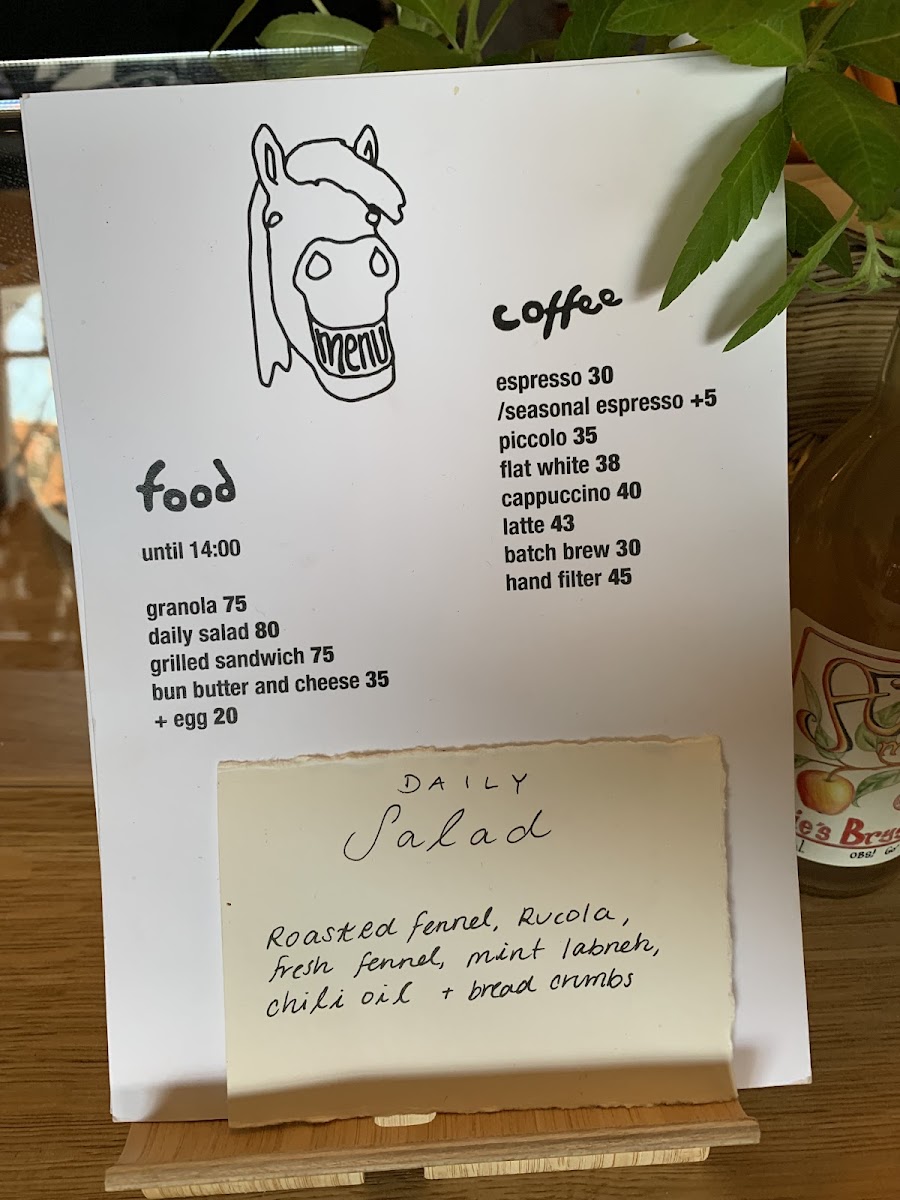 menu
food
until 14:00
granola 75
daily salad 80
grilled sandwich 75
bun butter and cheese 35
+ egg 20
coffee
espresso 30
/seasonal espresso +5
piccolo 35
flat white 38
cappuccino 40
latte 43
batch brew 30
hand filter 45
DAILY
Salad
Roasted fennel, Rucola,
fresh fennel, mint labneh,
chili oil + bread crumbs
OBS!